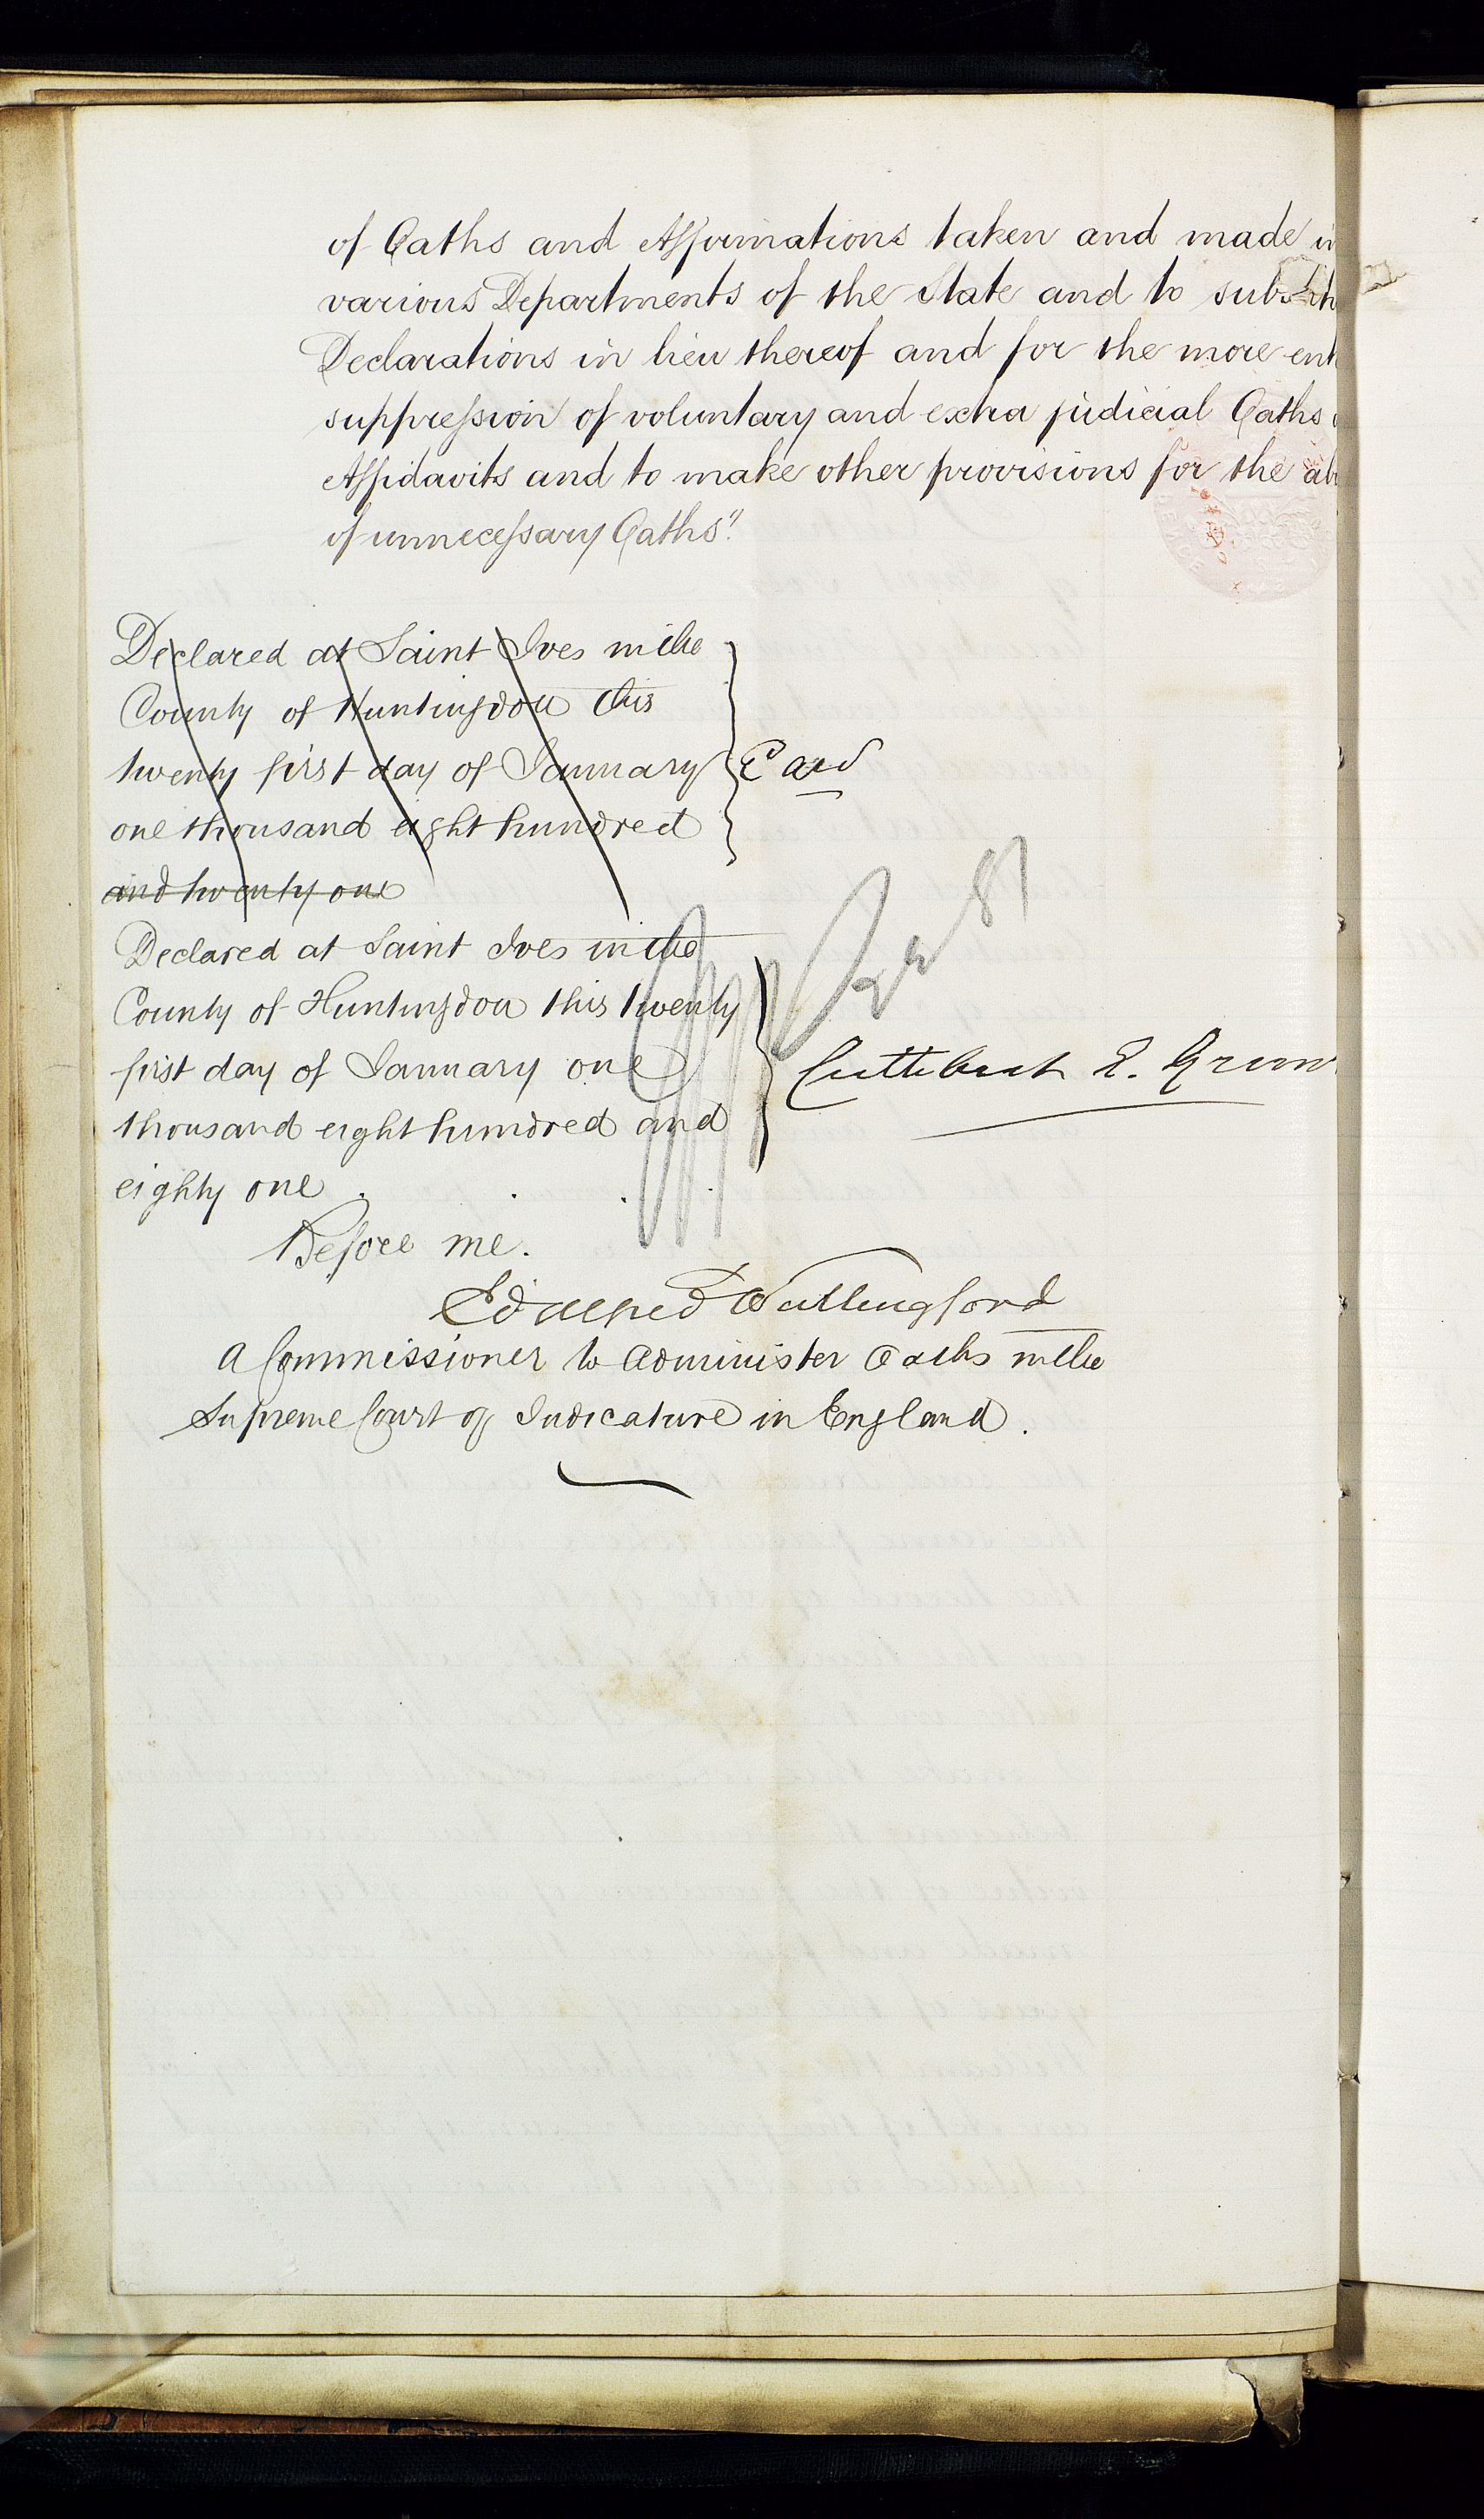 of Oaths and Affirmations taken and made in
various Departments of the State and to
Declarations in lieu thereof and for the more ent
suppression of voluntary and extra judicial Oaths
Affidavits and to make other provisions for the ab
of unnecessary Oaths".
Declared at Saint Ives in the
County of Huntingdon this
twenty first day of January
one thousand eight hundred
and twenty one
Declared at Saint Ives in the
County of Huntingdon this twenty
first day of January one
thousand eight hundred and
eighty one
Cuthbert E.
Before me.
A Commissioner to administer Oaths in the
Supreme Court of Judicature in England.